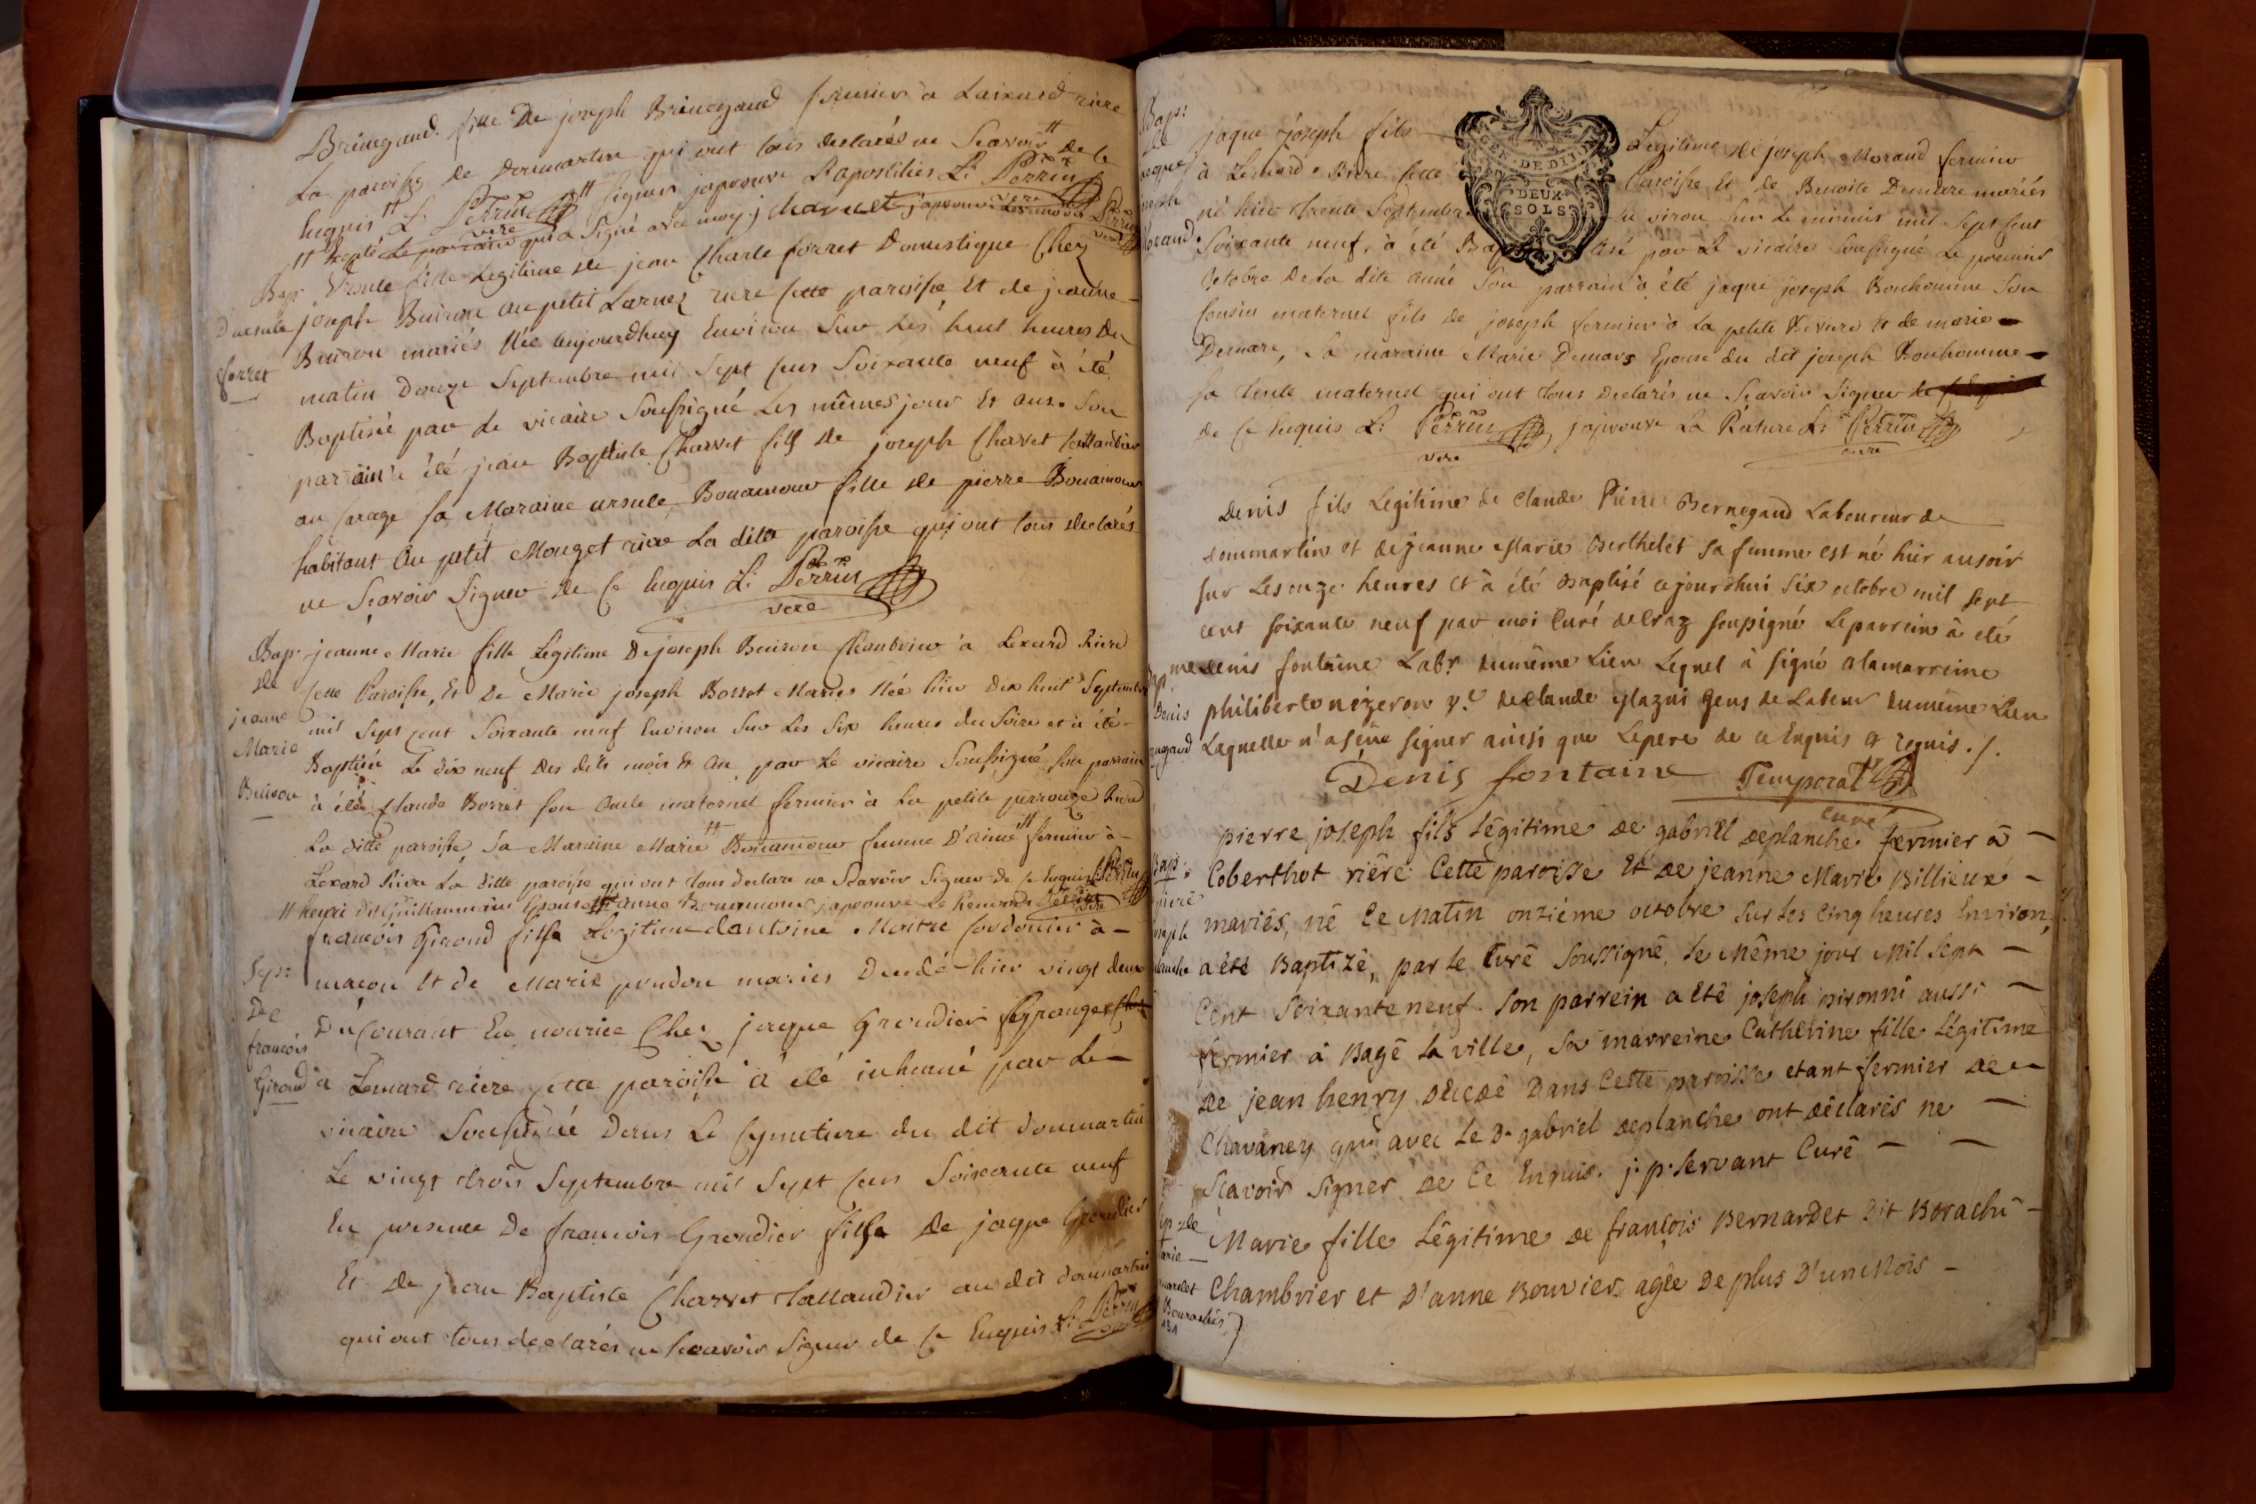 fille De joseph fermier à riere
La paroisse de Dommartin qui ont tous declarés ne Scavoir de le
Enquis L. Perrin vere Signer japrouve L. Perrin
Le parrain qui a Signé avec moy j charvet japrouve
Bap: D'ursule ferret
Ursule fille Legitime de jean Charle ferret Domestique Chez
joseph Buiron au petit riere Cette paroisse Et de jeanne
Buiron mariés Née aujourdhuy Environ Sur les huit heures Du
matin Douze Septembre mil Sept Cens Soixante neuf à été
Baptisée par Le vicaire Soussigné Les mêmes jour Et an. Son
parrain à été jean Baptiste Charvet fils de joseph Charvet
au sa Maraine ursule Bonamour fille de pierre Bonamour
habitant Au petit Mouget riere La ditte paroisse qui ont tous declarés
ne Scavoir Signer de Ce Enquis L. Perrin
vere
Bap: de jeanne Marie Buiron
jeanne Marie fille Legitime De joseph Buiron Chambrier à Lexard Riere
Cette Paroisse, Et De Marie joseph Borret Mariés Née hier Dix huit Septembre
mil Sept Cent Soixante neuf Environ Sur Les Six heures du Soire et à été
Baptisée Le dix neuf des dits mois & An par Le vicaire Soussigné Son parrain
à été Claude Borret son Oncle maternel fermier à La petite Riere
La ditte paroisse, Sa Maraine Marie Bonamour femme D'aimé fermier à
Lexard Riere La ditte paroisse qui ont tous declare ne Scavoir Signer de Ce Enquis L. Perrin
henri dit Guillaumain anne Bonamour japrouve Le Renvoi
Sep: De francois Giroud
francois Giroud fils Legitime dantoine Maitre Cordonier à
macon Et de Marie pendon mariés Decedé hier vingt deux
Du Courant En nourice Chez jaque Grondier
à Lemard riere Cette paroisse à été inhumé par Le
vicaire Soussigné Dans Le Cymetiere du dit dommartin
Le vingt trois Septembre mil Sept Cens Soixante neuf
En presence De francois Grondier fils de jaque Grondier
Et de jean Baptiste Charvet au dit dommartin
qui ont tous declarés ne Scavoir Signer de Ce Enquis L. Perrin
Bap: de jaque joseph Morand
GEN. DE DIJON
DEUX SOLS
jaque joseph fils Legitime de joseph Morand fermier
à Lemard Riere Cette Paroisse Et de Benoite Demare mariés
né hier trente Septembre Environ Sur Le minuit mil Sept Cent
Soixante neuf, à été Baptisé par Le vicaire Soussigné Le premier
Octobre De La dite année Son parrain à été jaque joseph Bonhomme Son
Cousin maternel fils de joseph fermier à La petite Et de marie
Demare, Sa maraine Marie Demare Epouse du dit joseph Bonhomme
Sa tente maternel qui ont tous Declarés ne Scavoir Signer
de Ce Enquis L. Perrin vere japrouve La Rature L. Perrin vere
Denis fils Legitime de Claude Pierre Bernegaud Laboureur de
dommartin et de jeanne Marie Berthelet Sa femme est né hier au soir
sur Les onze heures et à été Baptisé cejourdhui Six octobre mil Sept
cent soixante neuf par moi Curé de Craz soussigné Le parrein à eté
denis fontaine Labr. du même Lieu Lequel à signé & la marreine
philiberte nizeron de Claude gens de Labeur du même Lieu
Laquelle n'a signer ainsi que Le pere de ce Enquis & requis ./.
Denis fontaine Temporal
Curé
pierre joseph fils Légitime de gabriel deplanche fermier à
Coberthot riere Cette paroisse Et de jeanne Marie Billieux
mariés, né Ce Matin onziéme octobre Sur les Cinq heures Environ,
a été Baptizé, par le Curé Soussigné, le Même jour Mil Sept
Cent Soixante neuf. Son parrein a été joseph pironni aussi
fermier à Bagé la ville, Sa marreine Catherine fille Légitime
de jean henry décédé Dans Cette paroisse etant fermier de
Chavaney qui avec le Dt. gabriel deplanche ont déclarés ne
Scavoir Signer de Ce Enquis. j. p. Servant Curé
Marie fille Légitime de françois Bernardet dit Borachû
Chambrier et d'anne Bouvier agée de plus d'un Mois